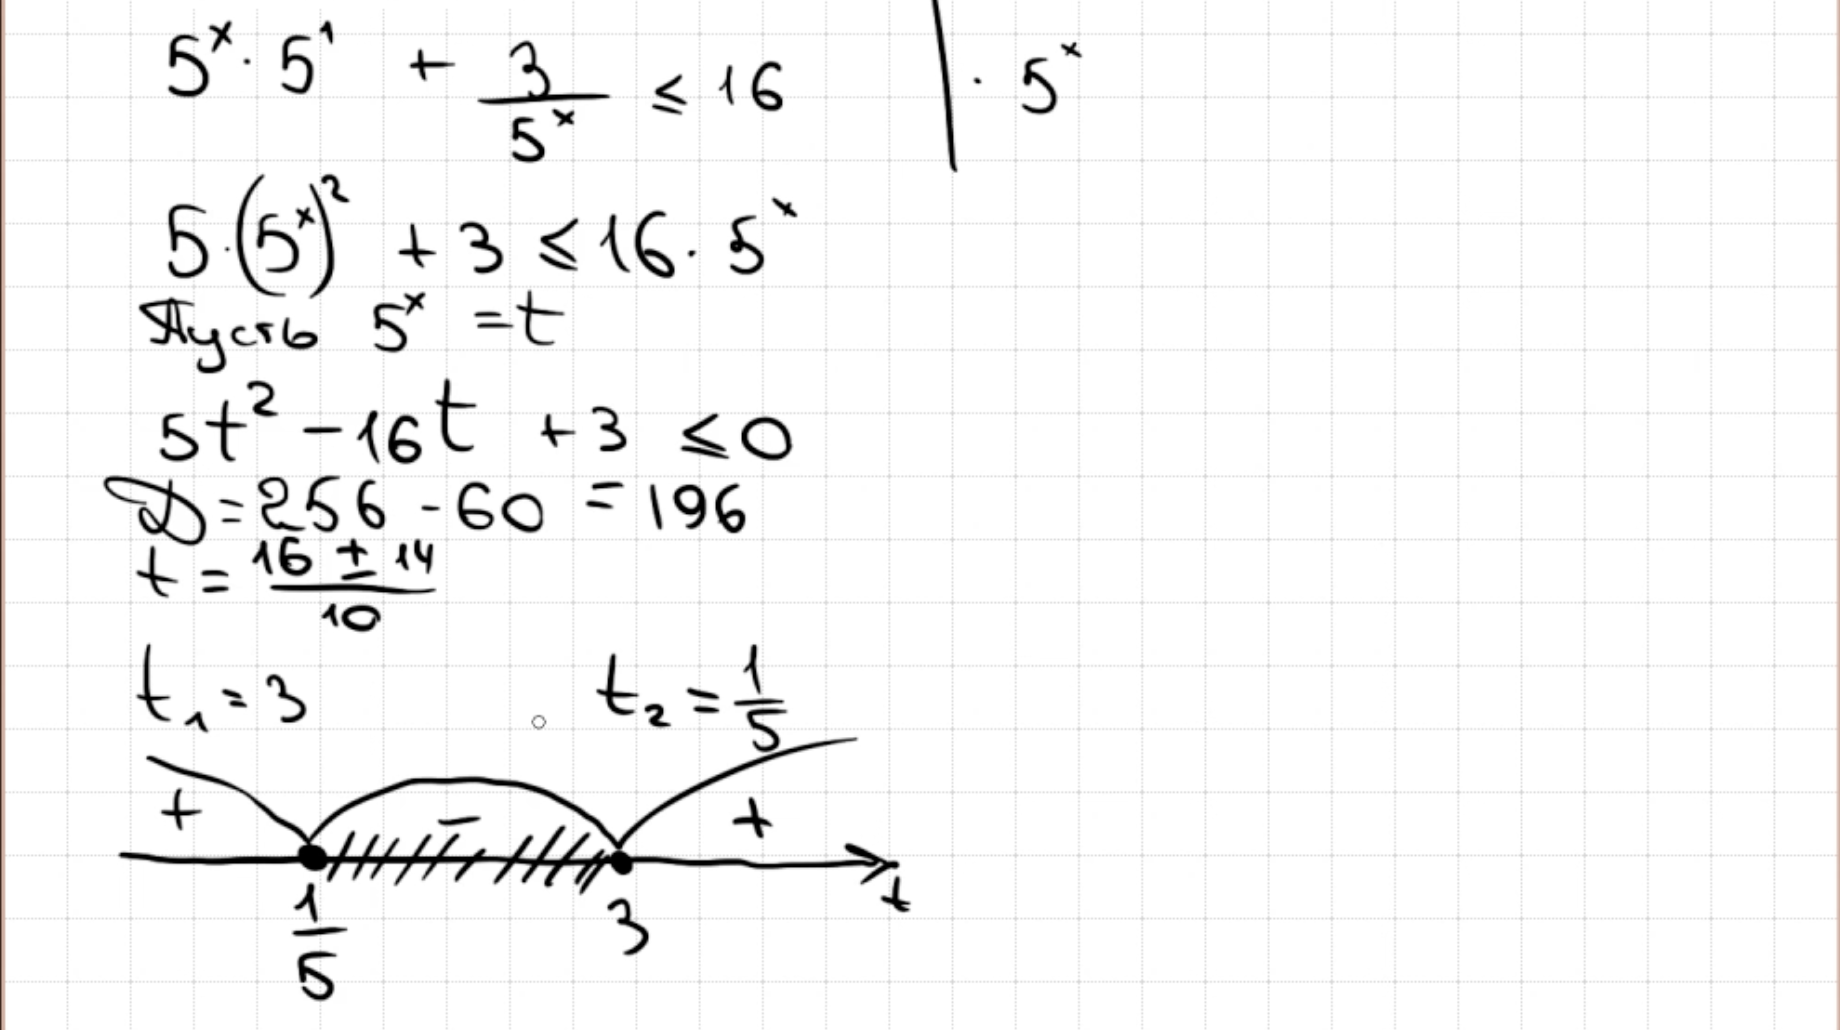 5ˣ · 5¹ + 3/5ˣ ≤ 16 | · 5ˣ
5·(5ˣ)² + 3 ≤ 16 · 5ˣ
Пусть 5ˣ = t
5t² − 16t + 3 ≤ 0
D = 256 - 60 = 196
t = (16 ± 14)/10
t₁ = 3 t₂ = 1/5
+ − +
1/5 3 t